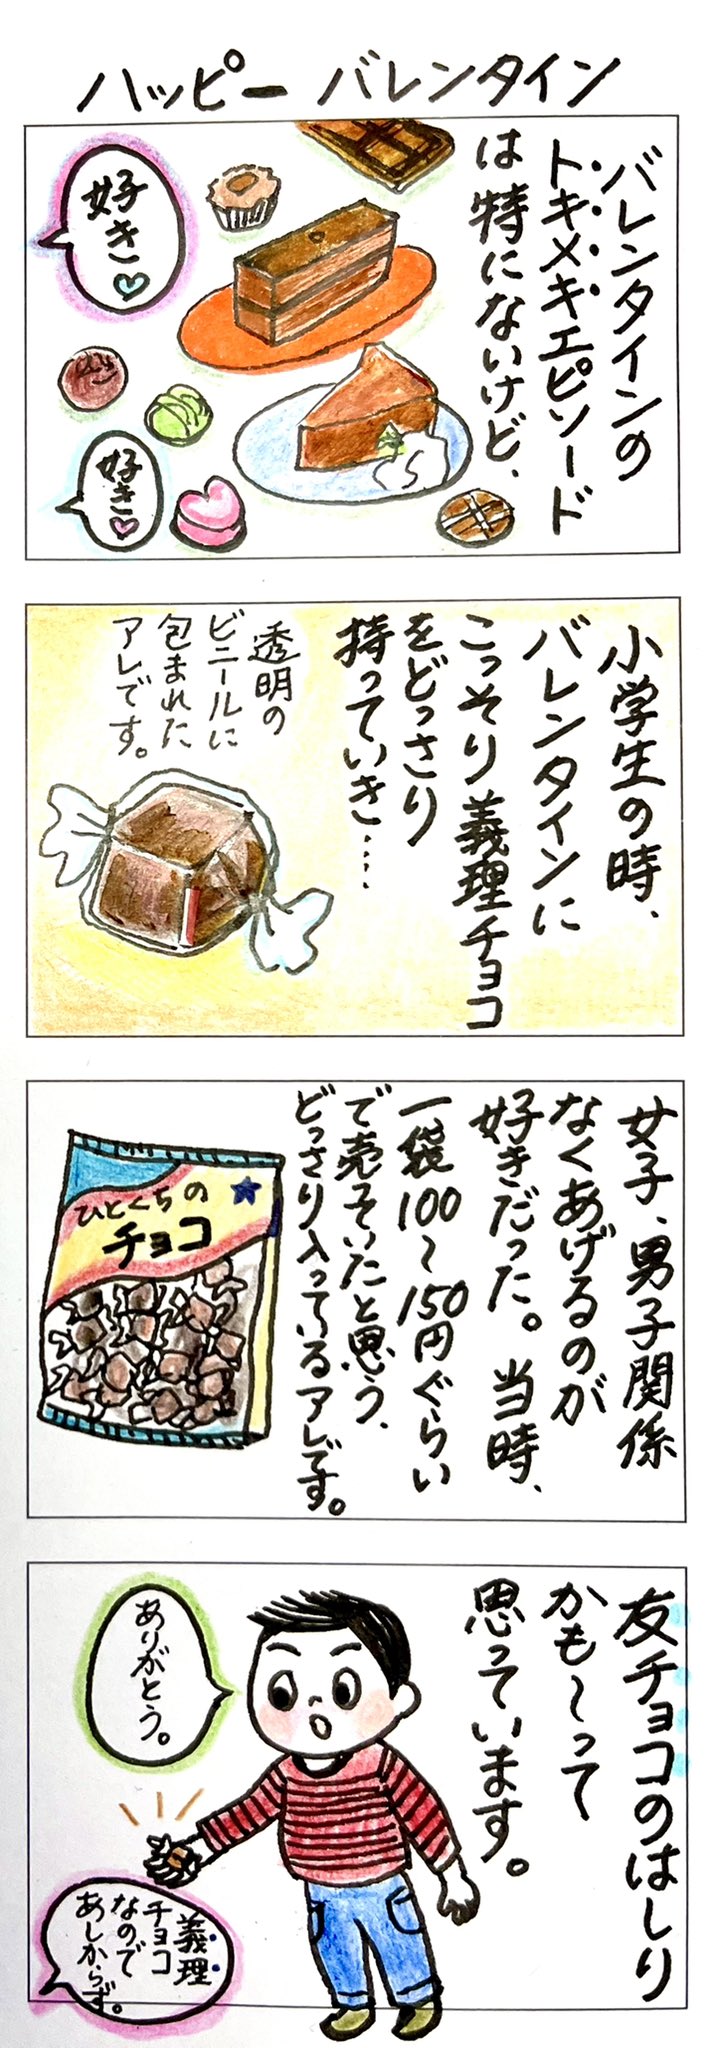 ハッピー バレンタイン
バレンタインの
トキメキエピソード
は特にないけど、
好き♡
好き♡
小学生の時、
バレンタインに
こっそり義理チョコ
をどっさり
持っていき…
透明の
ビニールに
包まれた
アレです。
女子、男子関係
なくあげるのが
好きだった。当時、
一袋100～150円ぐらい
で売っていたと思う、
どっさり入っているアレです。
ひとくちの
チョコ
友チョコのはしり
かも～って
思っています。
ありがとう。
義理
チョコ
なので
あしからず。